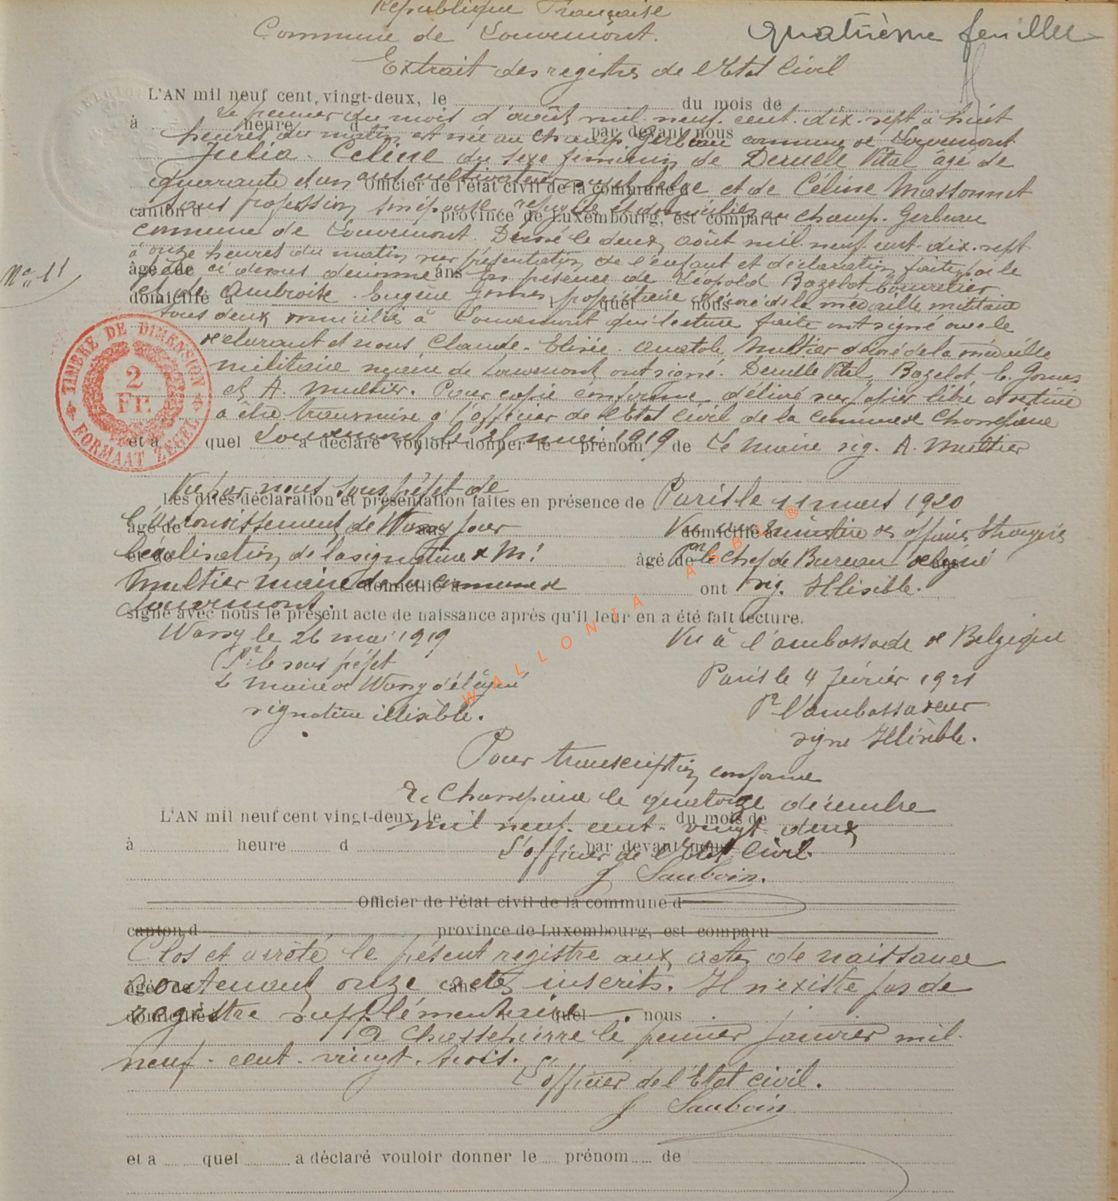 République Française
Commune de Louvemont. quatrième feuillet
Extrait des registres de l'Etat Civil
L'AN mil neuf cent vingt-deux, le du mois de
Le premier du mois d'août mil neuf cent dix-sept à huit
à heure d par devant nous
heures du matin est née au Champ Gerbeau commune de Louvemont
Julia Celine du sexe féminin de Denelle Vital âgé de
quarante et un ans cultivateur sujet belge et de Céline Massonnet
Officier de l'état civil de la commune d
sans profession son épouse et domiciliés au Champ Gerbeau
canton d province de Luxembourg, est comparu
commune de Louvemont. Dressé le deux août mil neuf cent dix-sept
à onze heures du matin sur présentation de l'enfant et déclaration faite par le
âgé de ans
père ci dessus dénommé en présence de Léopold Bazelot bourrelier
domicilié à quel nous
et de Ambroise Eugène Gomes propriétaire décoré de la médaille militaire
Nº 11
tous deux domiciliés à Louvemont qui lecture faite ont signé avec le
déclarant et nous Claude Elisée Anatole Multier décoré de la médaille
militaire maire de Louvemont ont signé. Denelle Vital, Bazelot L. Gomes
et A. Multier. Pour copie conforme délivré sur papier libre
à être transmise à l'officier de l'Etat Civil de la commune de Chassepierre
TIMBRE DE DIMENSION
2
Fr.
FORMAAT ZEGEL
et a quel a déclaré vouloir donner le prénom de
Louvemont le mai 1919 Le Maire sig. A. Multier
Vu par nous sous préfet de
Les dites déclaration et présentation faites en présence de Paris le 11 mars 1920
l'arrondissement de Wassy pour
âgé de ans domicilié à
Vu au ministère des affaires Etrangères
légalisation de la signature de Mr
et de âgé de
Pr le Chef de Bureau délégué
Multier maire de la commune de
domicilié à ont sig. Illisible.
Louvemont.
signé avec nous le présent acte de naissance après qu'il leur en a été fait lecture.
Wassy le 26 mai 1919 Vu à l'ambassade de Belgique
Pr le sous préfet
Paris le 4 février 1921
le maire de Wassy délégué
Pr l'ambassadeur
signature illisible.
signé Illisible.
WALLONIA ASBL ®
Pour transcription conforme
Chassepierre le quatorze décembre
L'AN mil neuf cent vingt-deux, le du mois de
mil neuf cent vingt deux
à heure d par devant nous
L'officier de l'Etat Civil.
J Sauboin.
Officier de l'état civil de la commune d
canton d province de Luxembourg, est comparu
Clos et arrêté le présent registre aux actes de naissance
âgé de ans
contenant onze actes inscrits. Il n'existe pas de
domicilié à quel nous
registre supplémentaire.
à Chassepierre le premier janvier mil
neuf cent vingt trois.
L'officier de l'Etat civil.
J Sauboin
et a quel a déclaré vouloir donner le prénom de